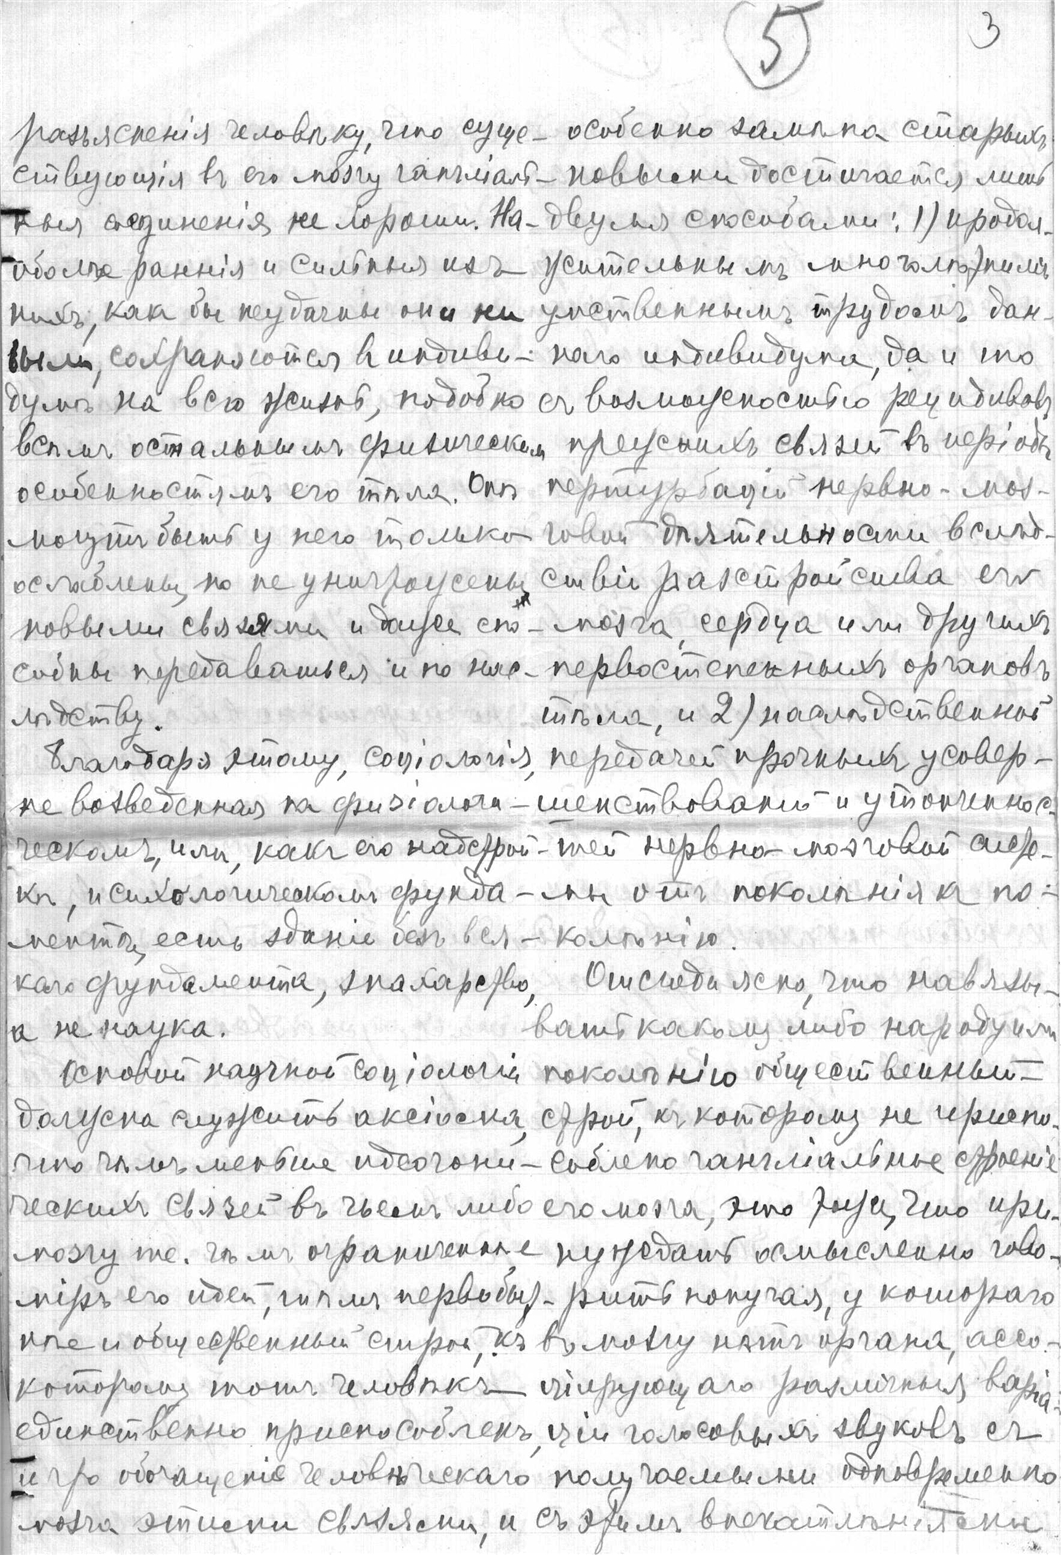 5
3
разъясненія человѣку, что суще-
ствующія въ его мозгу гангліаль-
ныя соединенія не хороши. На-
оболѣе раннія и сильныя изъ
нихъ, какъ бы неудачны они ни
были, сохраняются в индиви-
думѣ на всю жизнь, подобно
всѣмъ остальнымъ физическим
особенностямъ его тѣла. Онѣ
могутъ быть у него только
ослаблены, но не уничтожены
новыми связями и даже спо-
собны передаваться и по нас-
лѣдству.
Благодаря этому, соціологія,
не возведенная на физіологи-
ческомъ, или, какъ его надстрой-
кѣ, психологическомъ фунда-
ментѣ, есть зданіе безъ вся-
каго фундамента, знахарство,
а не наука.
Основой научной соціологіи
должна служить аксіома,
что чѣмъ меньше идеогони-
ческихъ связей въ чьемъ либо
мозгу т.е. чѣмъ ограниченнѣе
міръ его идей, тѣмъ первобыт-
нѣе и общественный строй, къ
которому тотъ человѣкъ
единственно приспособленъ,
и что обогащеніе человѣческаго
мозга этими связями, и съ этимъ
особенно замѣна старыхъ
новыми достигается лишь
двумя способами: 1) продол-
жительнымъ многолѣтнимъ
умственнымъ трудомъ дан-
наго индивидума, да и то
съ возможностью рецидивовъ
прежнихъ связей въ періоды
пертурбацій нервно-моз-
говой дѣятельности вслѣд-
ствіи разстройства его
мозга, сердца или другихъ
первостепенныхъ органовъ
тѣла, и 2) наслѣдственной
передачей прочныхъ усовер-
шенствованій и утонченнос-
тей нервно-мозговой систе-
мы отъ поколѣнія к по-
колѣнію.
Отсюда ясно, что навязы-
вать какому либо народу или
поколѣнію общественный
строй, къ которому не приспо-
соблено гангліальное строеніе
его мозга, это тоже, что при-
нуждать осмысленно гово-
рить попугая, у котораго
въ мозгу нѣтъ органа, ассо-
ціирующаго различныя варіа-
ціи голосовыхъ звуковъ съ
получаемыми одновременно
впечатлѣніями